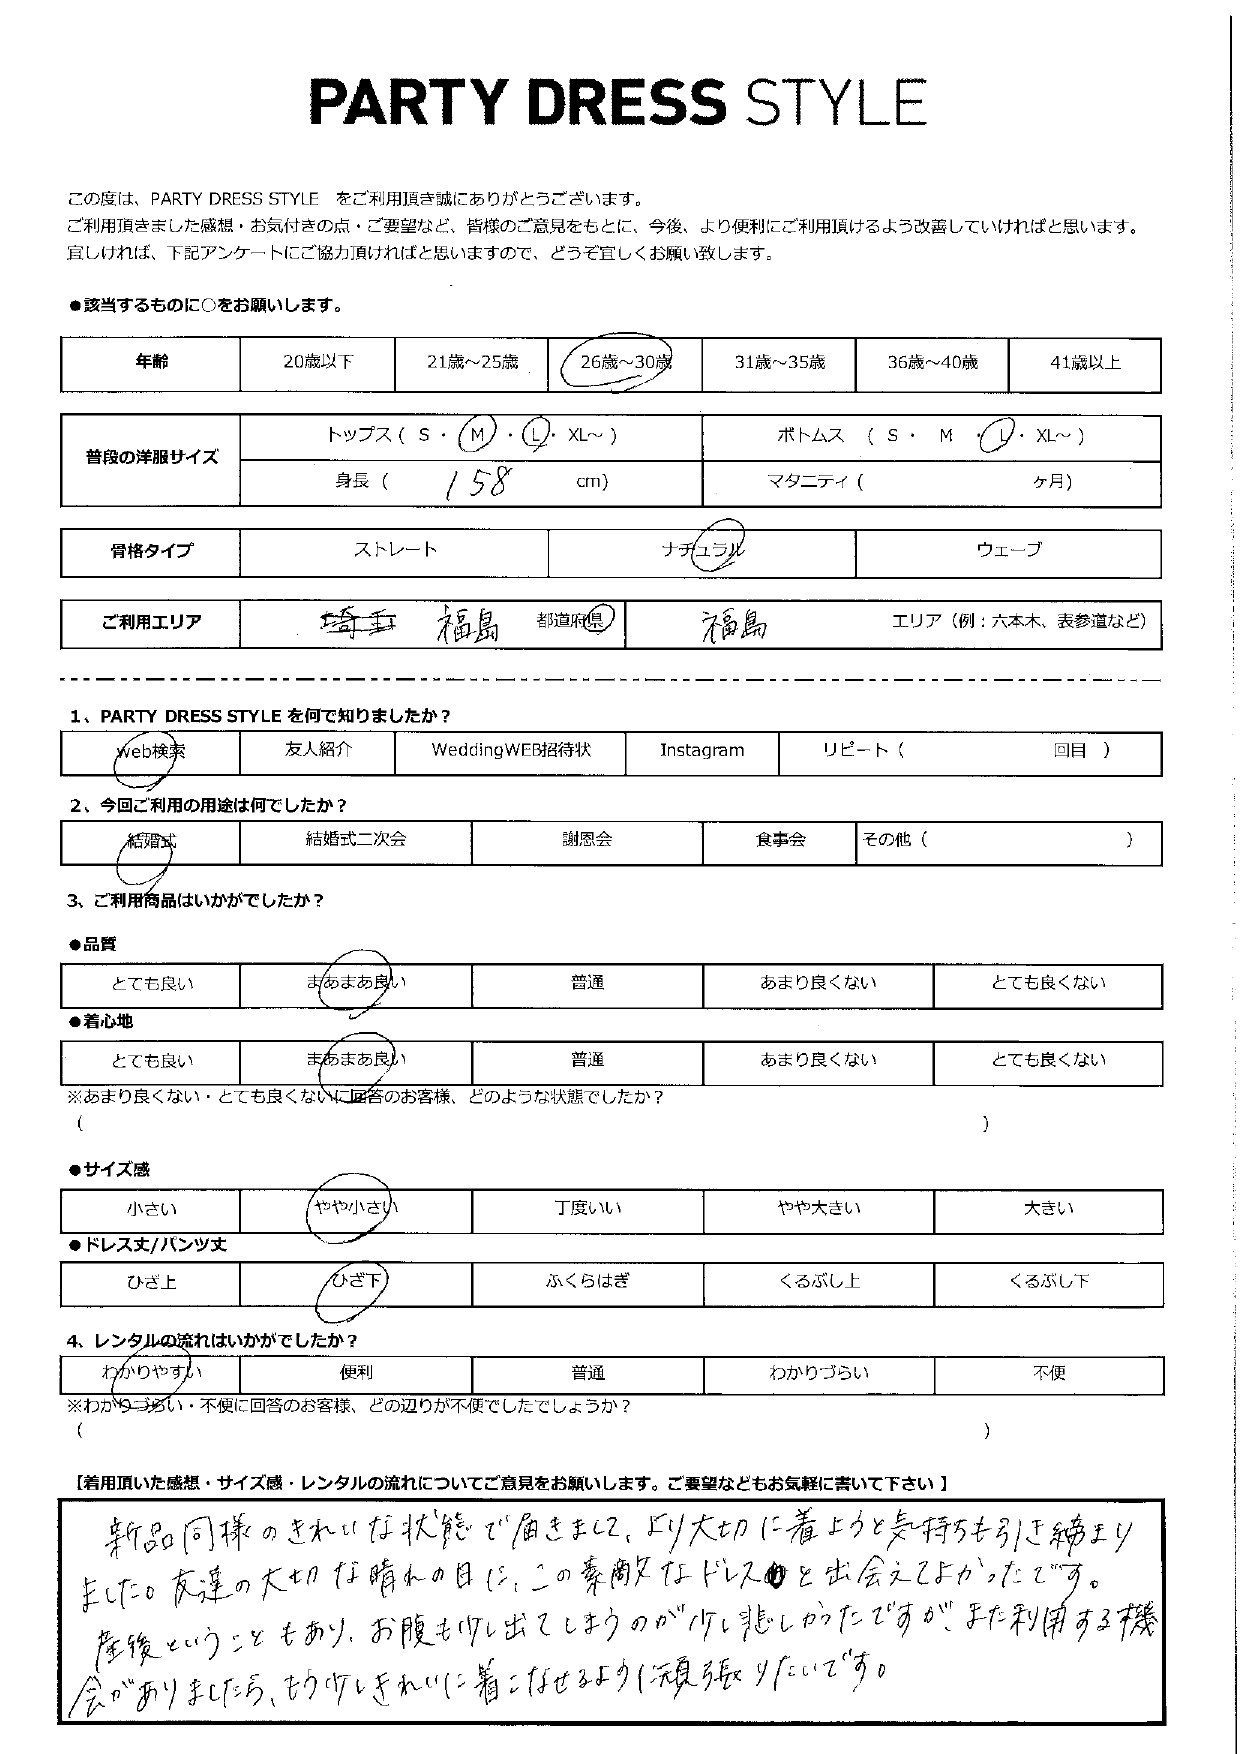 PARTY DRESS STYLE
この度は、PARTY DRESS STYLE をご利用頂き誠にありがとうございます。
ご利用頂きました感想・お気付きの点・ご要望など、皆様のご意見をもとに、今後、より便利にご利用頂けるよう改善していければと思います。
宜しければ、下記アンケートにご協力頂ければと思いますので、どうぞ宜しくお願い致します。
●該当するものに○をお願いします。
年齢 20歳以下 21歳～25歳 26歳～30歳 31歳～35歳 36歳～40歳 41歳以上
普段の洋服サイズ トップス ( S ・ M ・ L ・ XL～ ) ボトムス ( S ・ M ・ L ・ XL～ )
身長 ( 158 cm) マタニティ ( ヶ月)
骨格タイプ ストレート ナチュラル ウェーブ
ご利用エリア 埼玉 福島 都道府県 福島 エリア (例：六本木、表参道など)
1、PARTY DRESS STYLE を何で知りましたか？
web検索 友人紹介 WeddingWEB招待状 Instagram リピート ( 回目 )
2、今回ご利用の用途は何でしたか？
結婚式 結婚式二次会 謝恩会 食事会 その他 ( )
3、ご利用商品はいかがでしたか？
●品質
とても良い まあまあ良い 普通 あまり良くない とても良くない
●着心地
とても良い まあまあ良い 普通 あまり良くない とても良くない
※あまり良くない・とても良くないに回答のお客様、どのような状態でしたか？
( )
●サイズ感
小さい やや小さい 丁度いい やや大きい 大きい
●ドレス丈/パンツ丈
ひざ上 ひざ下 ふくらはぎ くるぶし上 くるぶし下
4、レンタルの流れはいかがでしたか？
わかりやすい 便利 普通 わかりづらい 不便
※わかりづらい・不便に回答のお客様、どの辺りが不便でしたでしょうか？
( )
【着用頂いた感想・サイズ感・レンタルの流れについてご意見をお願いします。ご要望などもお気軽に書いて下さい 】
新品同様のきれいな状態で届きまして、より大切に着ようと気持ちも引き締まり
ました。友達の大切な晴れの日に、この素敵なドレスと出会えてよかったです。
産後ということもあり、お腹も少し出てしまうのが少し悲しかったですが、また利用する機
会がありましたら、もう少しきれいに着こなせるように頑張りたいです。